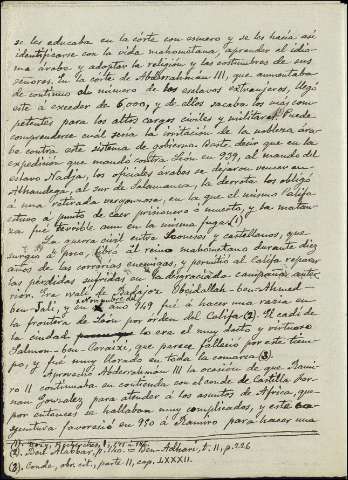 se les educaba en la corte con esmero y se les hacía así
identificarse con la vida mahometana, aprender el idio-
ma árabe y adoptar la religión y las costumbres de sus
señores. En la corte de Abderrahmán III, que aumentaba
de continuo el número de los esclavos extranjeros, llegó
este á exceder de 6,000, y de ellos sacaba los más com-
petentes para los altos cargos civiles y militares. Puede
comprenderse cuál sería la irritación de la nobleza ára-
be contra este sistema de gobierno. Baste decir que en la
expedición que mandó contra León en 939, al mando del
eslavo Nadja, los oficiales árabes se dejaron vencer en
Alhandega, al sur de Salamanca, la derrota los obligó
á una retirada vergonzosa, en la que el mismo Califa
estuvo á punto de caer prisionero ó muerto, y la matan-
za fué terrible aun en la misma fuga (1).
La guerra civil entre leoneses y castellanos, que
surgió á poco, libró al reino mahometano durante diez
años de las correrías enemigas, y permitió al Califa reparar
las pérdidas sufridas en la desgraciada campaña ante-
rior. Era walí de Badajoz Obeidallah-ben-Ahmed-
ben-Jali, y en Noviembre del año 949 fué á hacer una razia en
la frontera de León por orden del Califa (2). El cadí de
la ciudad lo era el muy docto y virtuoso
Salmon-ben-Coraixi, que parece falleció por este tiem-
po, y fué muy llorado en toda la comarca (3).
Aprovechó Abderrahmán III la ocasión de que Rami-
ro II continuaba en contienda con el conde de Castilla Fer-
nan Gonzalez para atender á los asuntos de África, que
por entonces se hallaban muy complicados, y este
favoreció en 950 á Ramiro para hacer una
(1). Dozy, Recherches, t.
(2). Ben Alabbar, p. 140. = Ben-Adharí, t. II, p. 226
(3). Conde, obr. cit., parte II, cap. LXXXII.